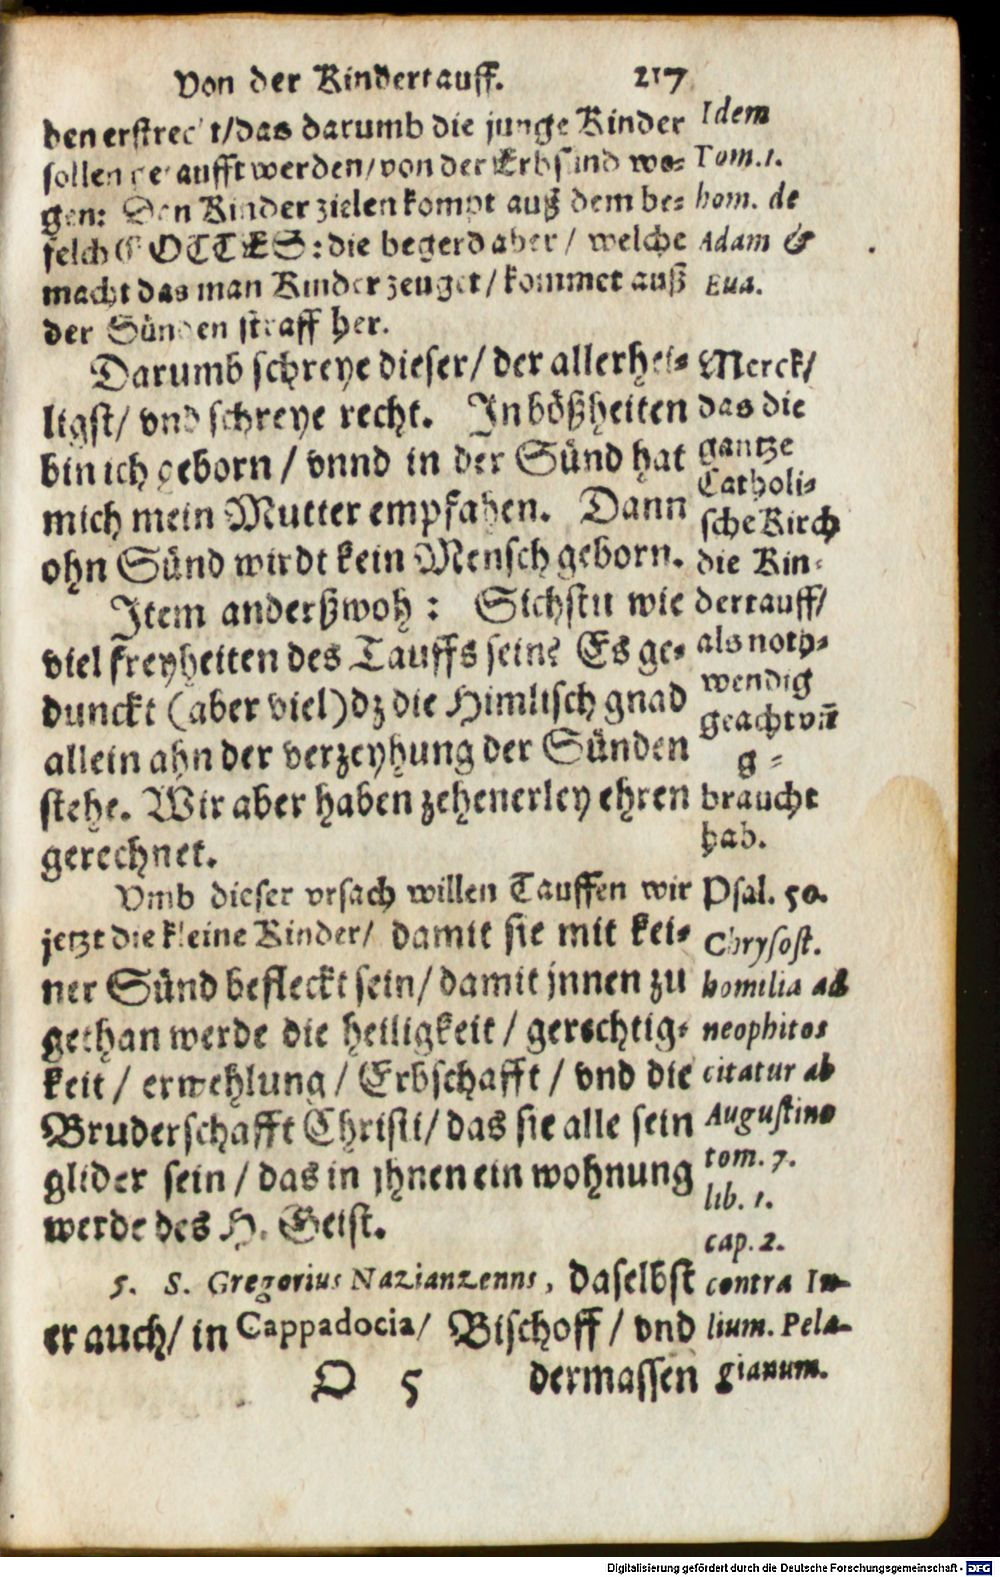 Von der Kindertauff. 217
den erstreckt/das darumb die junge Kinder
sollen getaufft werden/von der Erbsünd we-
gen: Den Kinder zielen kompt auß dem be-
felch GOTTES: die begerd aber / welche
macht das man Kinder zeuget/ kommet auß
der Sünden straff her.
Darumb schreye dieser/ der allerhei-
ligst/ vnd schreye recht. In bößheiten
bin ich geborn / vnnd in der Sünd hat
mich mein Mutter empfahen. Dann
ohn Sünd wirdt kein Mensch geborn.
Item anderßwoh : Sichstu wie
viel freyheiten des Tauffs seine Es ge-
dunckt (aber viel) dz die Himlisch gnad
allein ahn der verzeyhung der Sünden
stehe. Wir aber haben zehenerley ehren
gerechnet.
Vmb dieser vrsach willen Tauffen wir
jetzt die kleine Kinder/ damit sie mit kei-
ner Sünd befleckt sein/ damit jnnen zu
gethan werde die heiligkeit / gerechtig-
keit / erwehlung / Erbschafft / vnd die
Bruderschafft Christi/ das sie alle sein
glider sein / das in jhnen ein wohnung
werde des H. Geist.
5. S. Gregorius Nazianzenns, daselbst
er auch/ in Cappadocia/ Bischoff / vnd
O 5 dermassen
Idem
Tom. 1.
hom. de
Adam &
Eua.
Merck/
das die
gantze
Catholi-
sche Kirch
die Kin-
dertauff/
als noth-
wendig
geacht vñ
g-
braucht
hab.
Psal. 50.
Chrysost.
homilia ad
neophitos
citatur ab
Augustino
tom. 7.
lib. 1.
cap. 2.
contra Iu-
lium. Pela-
gianum.
Digitalisierung gefördert durch die Deutsche Forschungsgemeinschaft - DFG